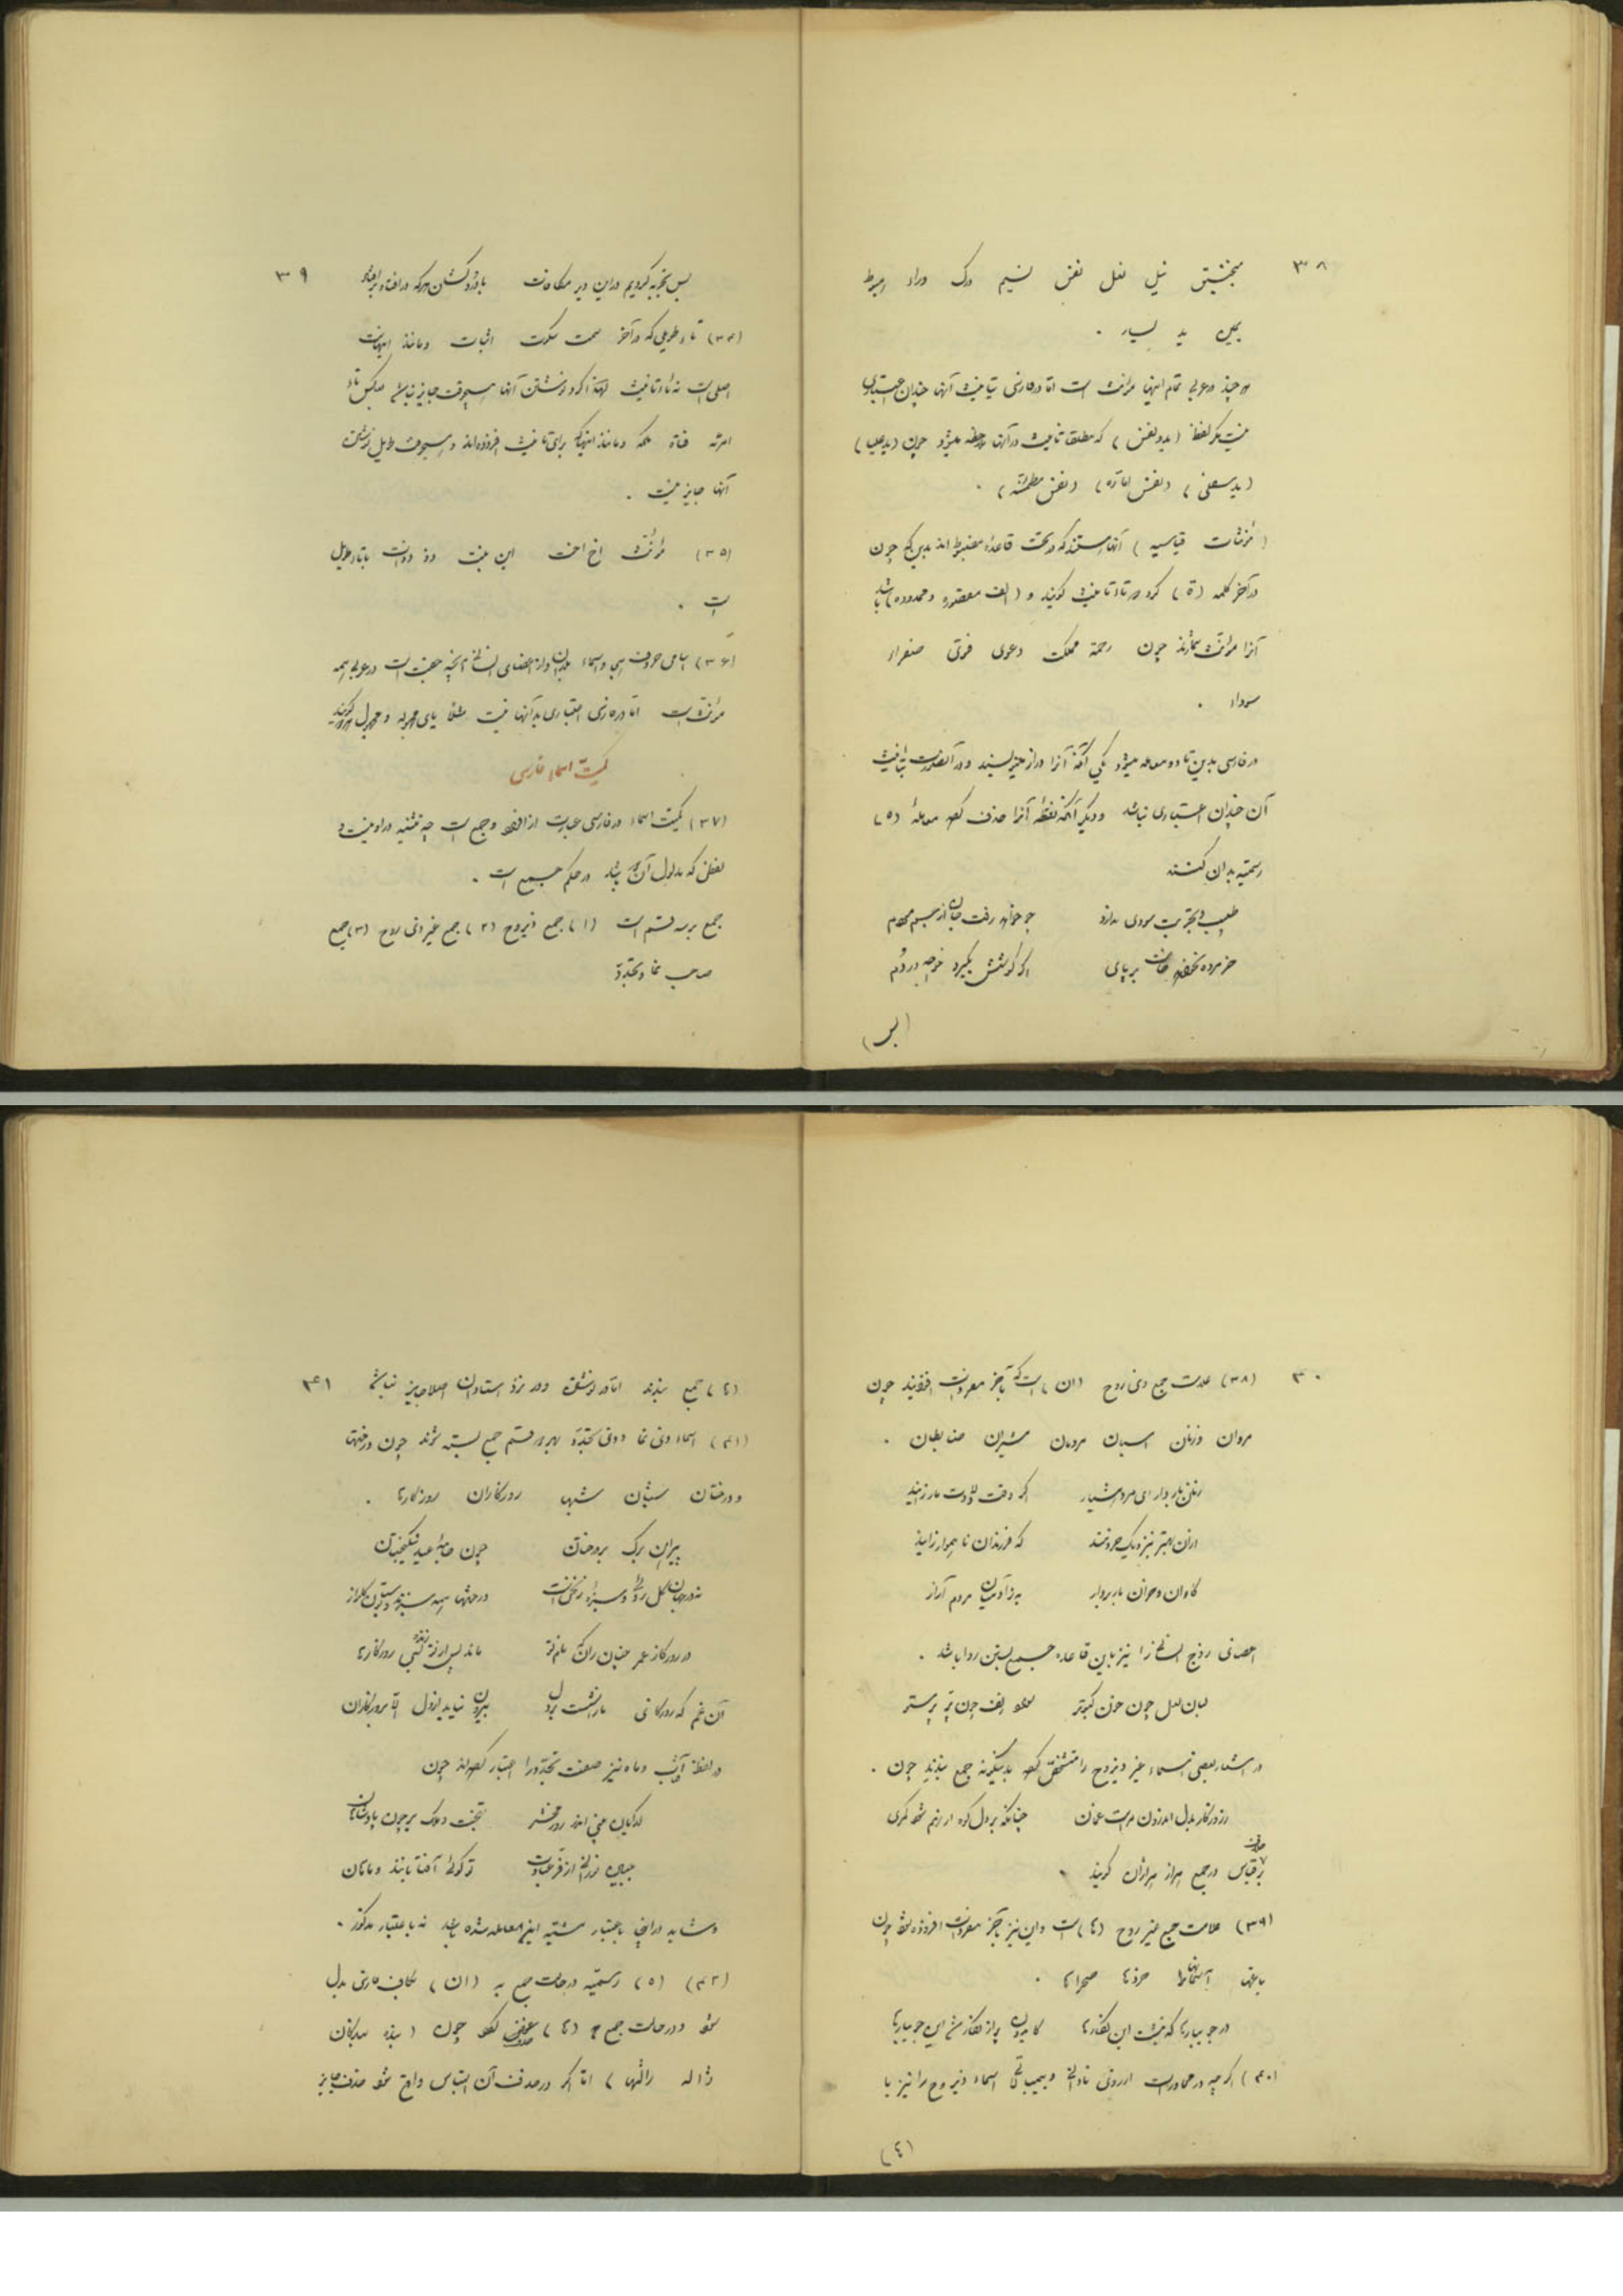 ۳۸
منجنیق نیل نعل نفس نسیم ورک وراء هبوط
یمین ید یسار .
هر چند در عربی تمام اینها مؤنث است اما در فارسی بتأنیث آنها چندان اعتباری
نیست مگر لفظ (ید و نفس) که مطلقا تأنیث در آنها ملاحظه میشود چون (ید علیا)
(ید سفلی) (نفس اماره) (نفس مطمئنه) .
(مؤنثات قیاسیه) آنها هستند که در تحت قاعدهٔ مضبوط اند بدین حکم چون
در آخر کلمه (ة) گرد که تاء تأنیث گویند و (الف مقصوره و ممدوده) باشد
آنرا مؤنث شمارند چون رحمة مملکت دعوی فتوی صفراء
سوداء .
در فارسی بدین تا دو معامله میشود یکی آنکه آنرا دراز مینویسند و در آنصورت بتأنیث
آن چندان اعتباری نباشد و دیگر آنکه نقطهٔ آنرا حذف کرده معاملهٔ (ه)
رسمیه بدان کنند
طبیب و تجربت سودی ندارد چو خواهد رفت جان از جسم مردم
خر مرده نخواهد خاست بر پای اگر گوشش بگیرد خواجه ور دم
(بس)
۳۹
بس تجربه کردیم در این دیر مکافات با درد کشان هر که در افتاد بر افتاد
(۳۴) تاء طویلی که در آخر سمت سکوت اثبات و مانند اینهاست
اصلی است نه تاء تأنیث لهذا گرد نوشتن آنها هیچوقت جایز نباشد بعکس تاء
امرئه فتاة ملکه و مانند اینها که برای تأنیث افزوده اند و هیچوقت طویل نوشتن
آنها جایز نیست .
(۳۵) مؤنث اخ اخت ابن بنت ذو ذوات با تاء طویل
است .
(۳۶) اسامی حروف هجا و اسماء بلدان و از اعضای انسانی آنچه جفت است در عربی همه
مؤنث است اما در فارسی اعتباری بدانها نیست مثلا یای مجهوله و مجهول هر دو گویند
کمیّت اسماء فارسی
(۳۷) کمیت اسماء در فارسی عبارت از افراد و جمع است چه تثنیه در او نیست و
لفظی که مدلول آن دو باشد در حکم جمع است .
جمع بر سه قسم است (۱) جمع ذیروح (۲) جمع غیر ذی روح (۳) جمع
صاحب نما و تجدّد
۴۰
(۳۸) علامت جمع ذی روح (ان) است که بآخر مفردات افزایند چون
مردان زنان اسبان مردمان شیران ضابطان .
زنان باردار ای مرد هشیار اگر وقت ولادت مار زایند
از آن بهتر بنزدیک خردمند که فرزندان ناهموار زایند
گاوان و خران باربردار به ز آدمیان مردم آزار
اعضای زوج انسانی را نیز باین قاعده جمع بستن روا باشد .
لبان لعل چون خون کبوتر سواد زلف چون پر پرستو
در اشعار بعضی اسماء غیر ذیروح را متشخص کرده بدینگونه جمع بندند چون .
بر قیاس در جمع هزار هزاران گویند
(۳۹) علامت جمع غیر روح (ها) است و این نیز بآخر مفردات افزوده شود چون
باغها آسمانها مرزها صحراها .
(۴۰) اگر چه در محاورات از روی نادانی و بیمبالاتی اسماء ذیروح را نیز با
(٤)
۴۱
(ها) جمع بندند اما در نوشتن و در نزد استادان اصلا جایز نباشد
(۴۱) اسماء ذی نما و ذی تجدّد بهر دو قسم جمع بسته شوند چون درختها
و درختان شبان شبها روزگاران روزگارها .
پیران برگ بر درختان چون جامهٔ عید نیکبختان
در روزگار عمر چنان ران که بلکه تو ماند پس از تو زنده بسی روزگارها
آن غم که روزگاری ما را نشست بر دل بیرون نیاید از دل الا بروزگاران
در لفظ آفتاب و ماه نیز صفت تجدّد را اعتبار کرده اند چون
گدایان بینی اندر روز محشر بتخت ملک بر چون پادشاهان
چنان نورانی از فر عبادت تو گوئی آفتابانند و ماهان
و شاید در اینجا باعتبار تشبیه این معامله شده باشد نه باعتبار مذکور .
(۴۲) (ه) رسمیّه در حالت جمع به (ان) بکاف فارسی بدل
شود و در حالت جمع به (ها) حذف شود چون (بنده بندگان
ژاله ژالها) اما اگر در حذف آن التباس واقع شود حذف جایز